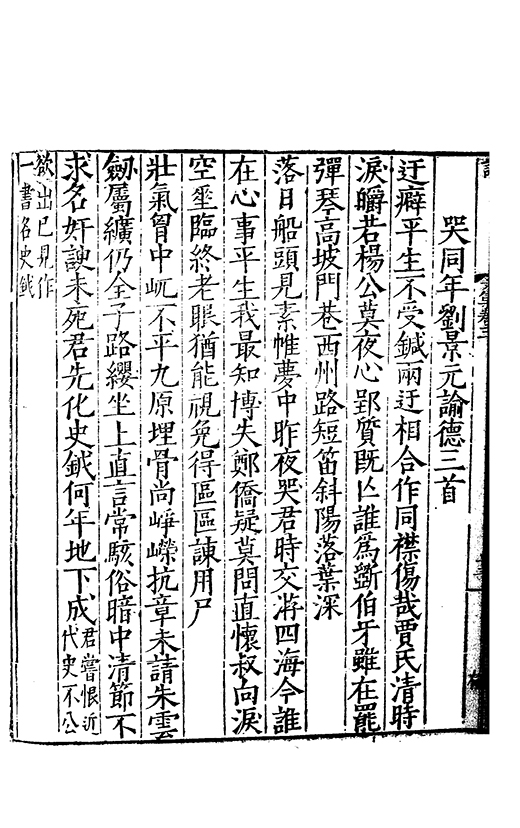 哭同年劉景元諭德三首
迂癖平生不受鍼兩迂相合作同襟傷哉賈氏清時
淚皭若楊公莫夜心郢質既亾誰為斵伯牙雖在罷
彈琴高坡門巷西州路短笛斜陽落葉深
落日船頭見素帷夢中昨夜哭君時交游四海今誰
在心事平生我最知博失鄭僑疑莫問直懷叔向淚
空垂臨終老眼猶能視免得區區諫用尸
壯氣胷中屼不平九原埋骨尚崢嶸抗章未請朱雲
劒屬纊仍全子路纓坐上直言常駭俗暗中清節不
求名奸諛未死君先化史鉞何年地下成君嘗恨近
代史不公
欲出己見作
一書名史鉞